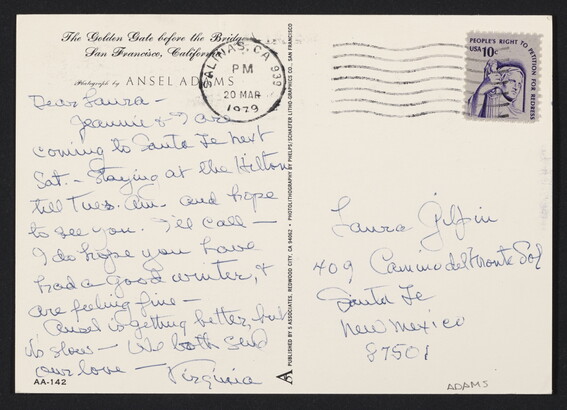 The Golden Gate before the Bridge,
San Francisco, California
Photograph by ANSEL ADAMS
SALINAS, CA 939
PM
20 MAR
1979
PEOPLE'S RIGHT TO PETITION FOR REDRESS
USA 10c
Dear Laura –
Jeannie & I are
coming to Santa Fe next
Sat. – Staying at the Hilton
till Tues. Am. and hope
to see you. I'll call –
I do hope you have
had a good winter, &
are feeling fine –
Ansel is getting better, but
its slow – We both send
our love – Virginia
AA-142
PUBLISHED BY 5 ASSOCIATES, REDWOOD CITY, CA 94062 • PHOTOLITHOGRAPHY BY PHELPS/SCHAEFER LITHO-GRAPHICS CO., SAN FRANCISCO
Laura Gilpin
409 Camino del Monte Sol
Santa Fe
New Mexico
87501
ADAMS